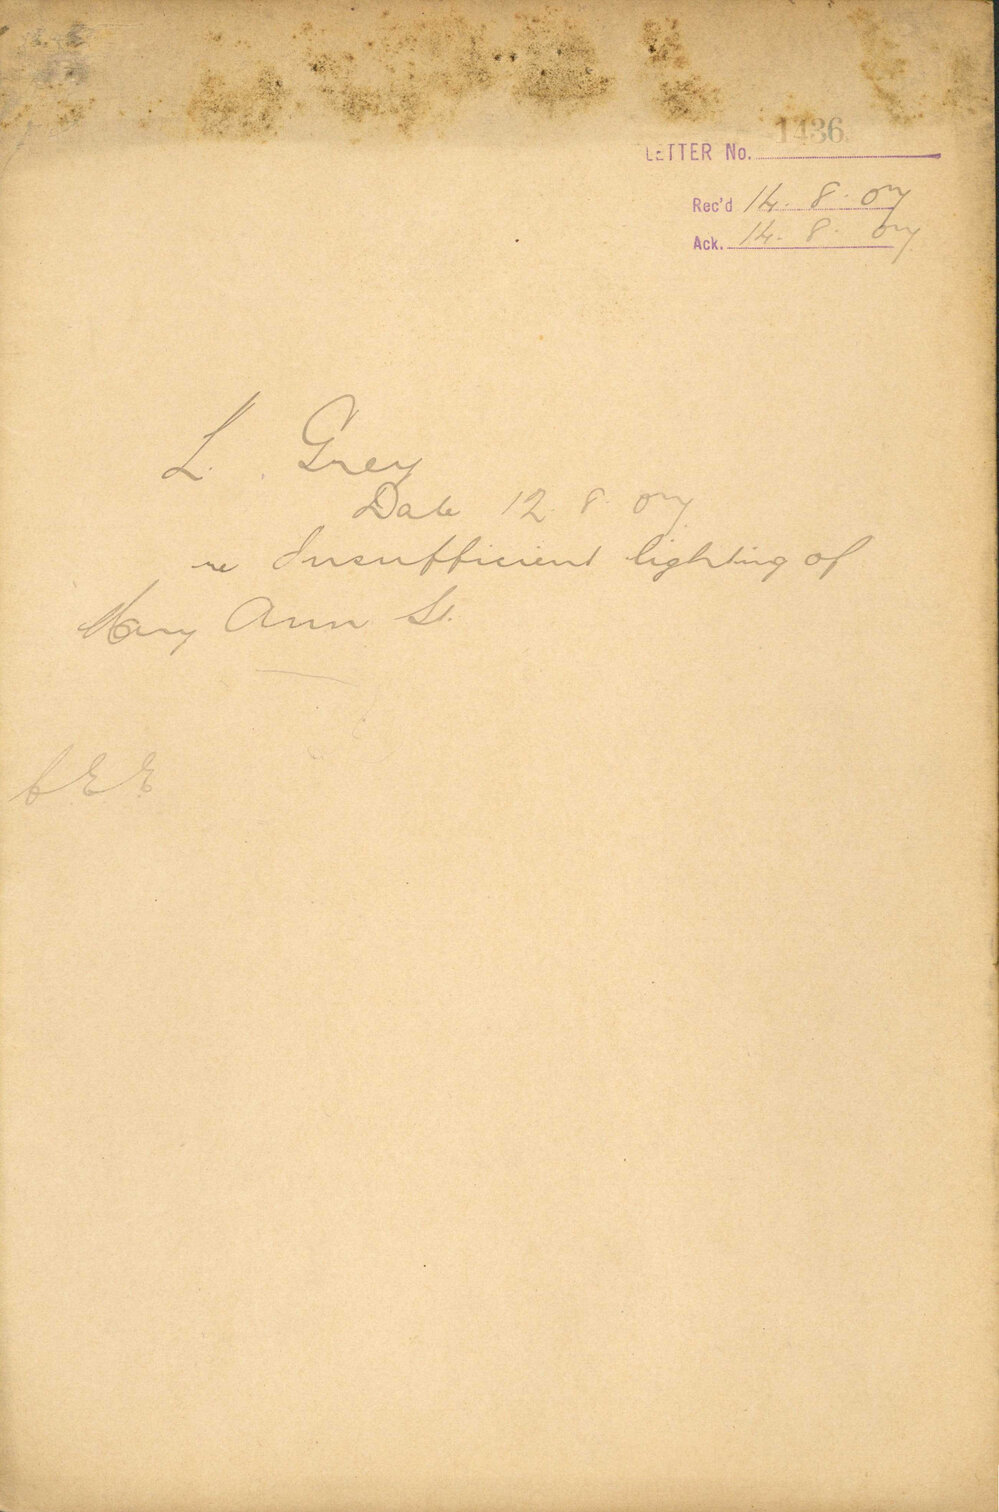 LETTER No. 1436
Rec'd 14. 8. 07
Ack. 14. 8. 07
L. Grey
Date 12. 8. 07
re Insufficient lighting of
Mary Ann St.
C.E.E.